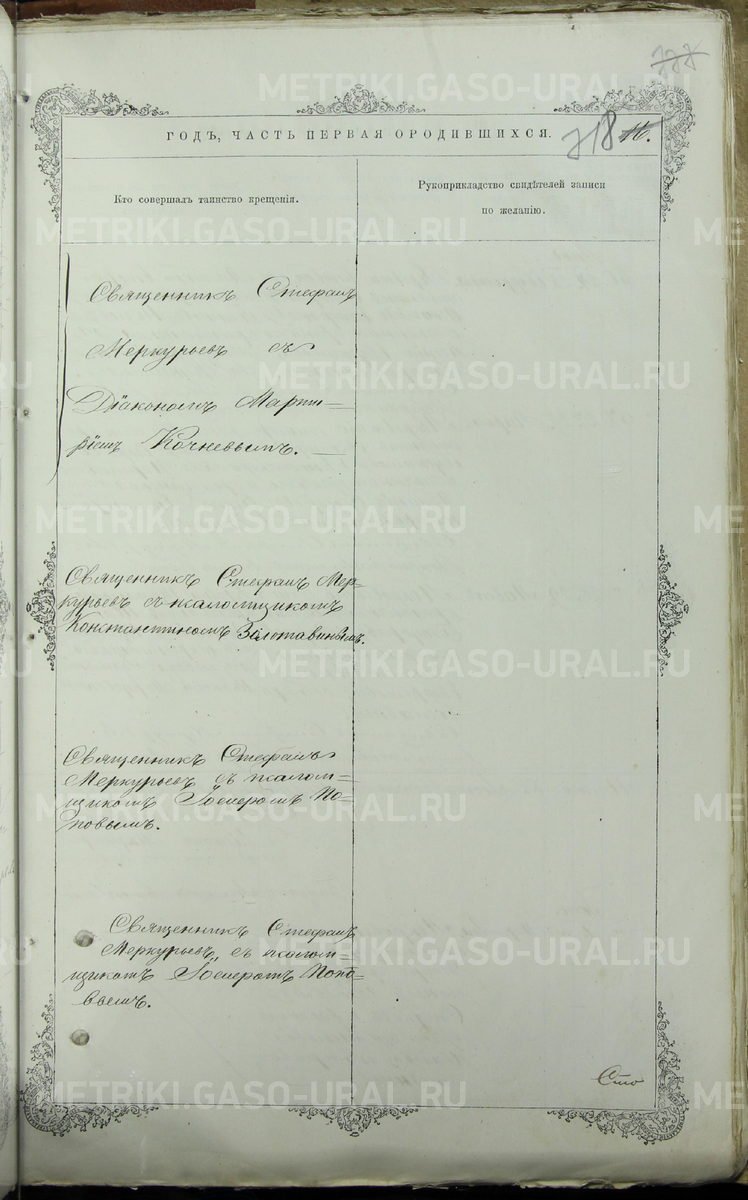 ГОДЪ, ЧАСТЬ ПЕРВАЯ ОРОДИВШИХСЯ.
718
16.
Кто совершалъ таинство крещенія.
Рукоприкладство свидѣтелей записи
по желанію.
Священникъ Стефанъ
Меркурьевъ съ
Діакономъ Марти-
ріемъ Кочневымъ.
Священникъ Стефанъ Мер-
курьевъ съ псаломщикомъ
Константиномъ Золотавинымъ.
Священникъ Стефанъ
Меркурьевъ съ псалом-
щикомъ По-
повымъ.
Священникъ Стефанъ
Меркурьевъ, съ псалом-
щикомъ Попо-
вымъ.
Сто
METRIKI.GASO-URAL.RU